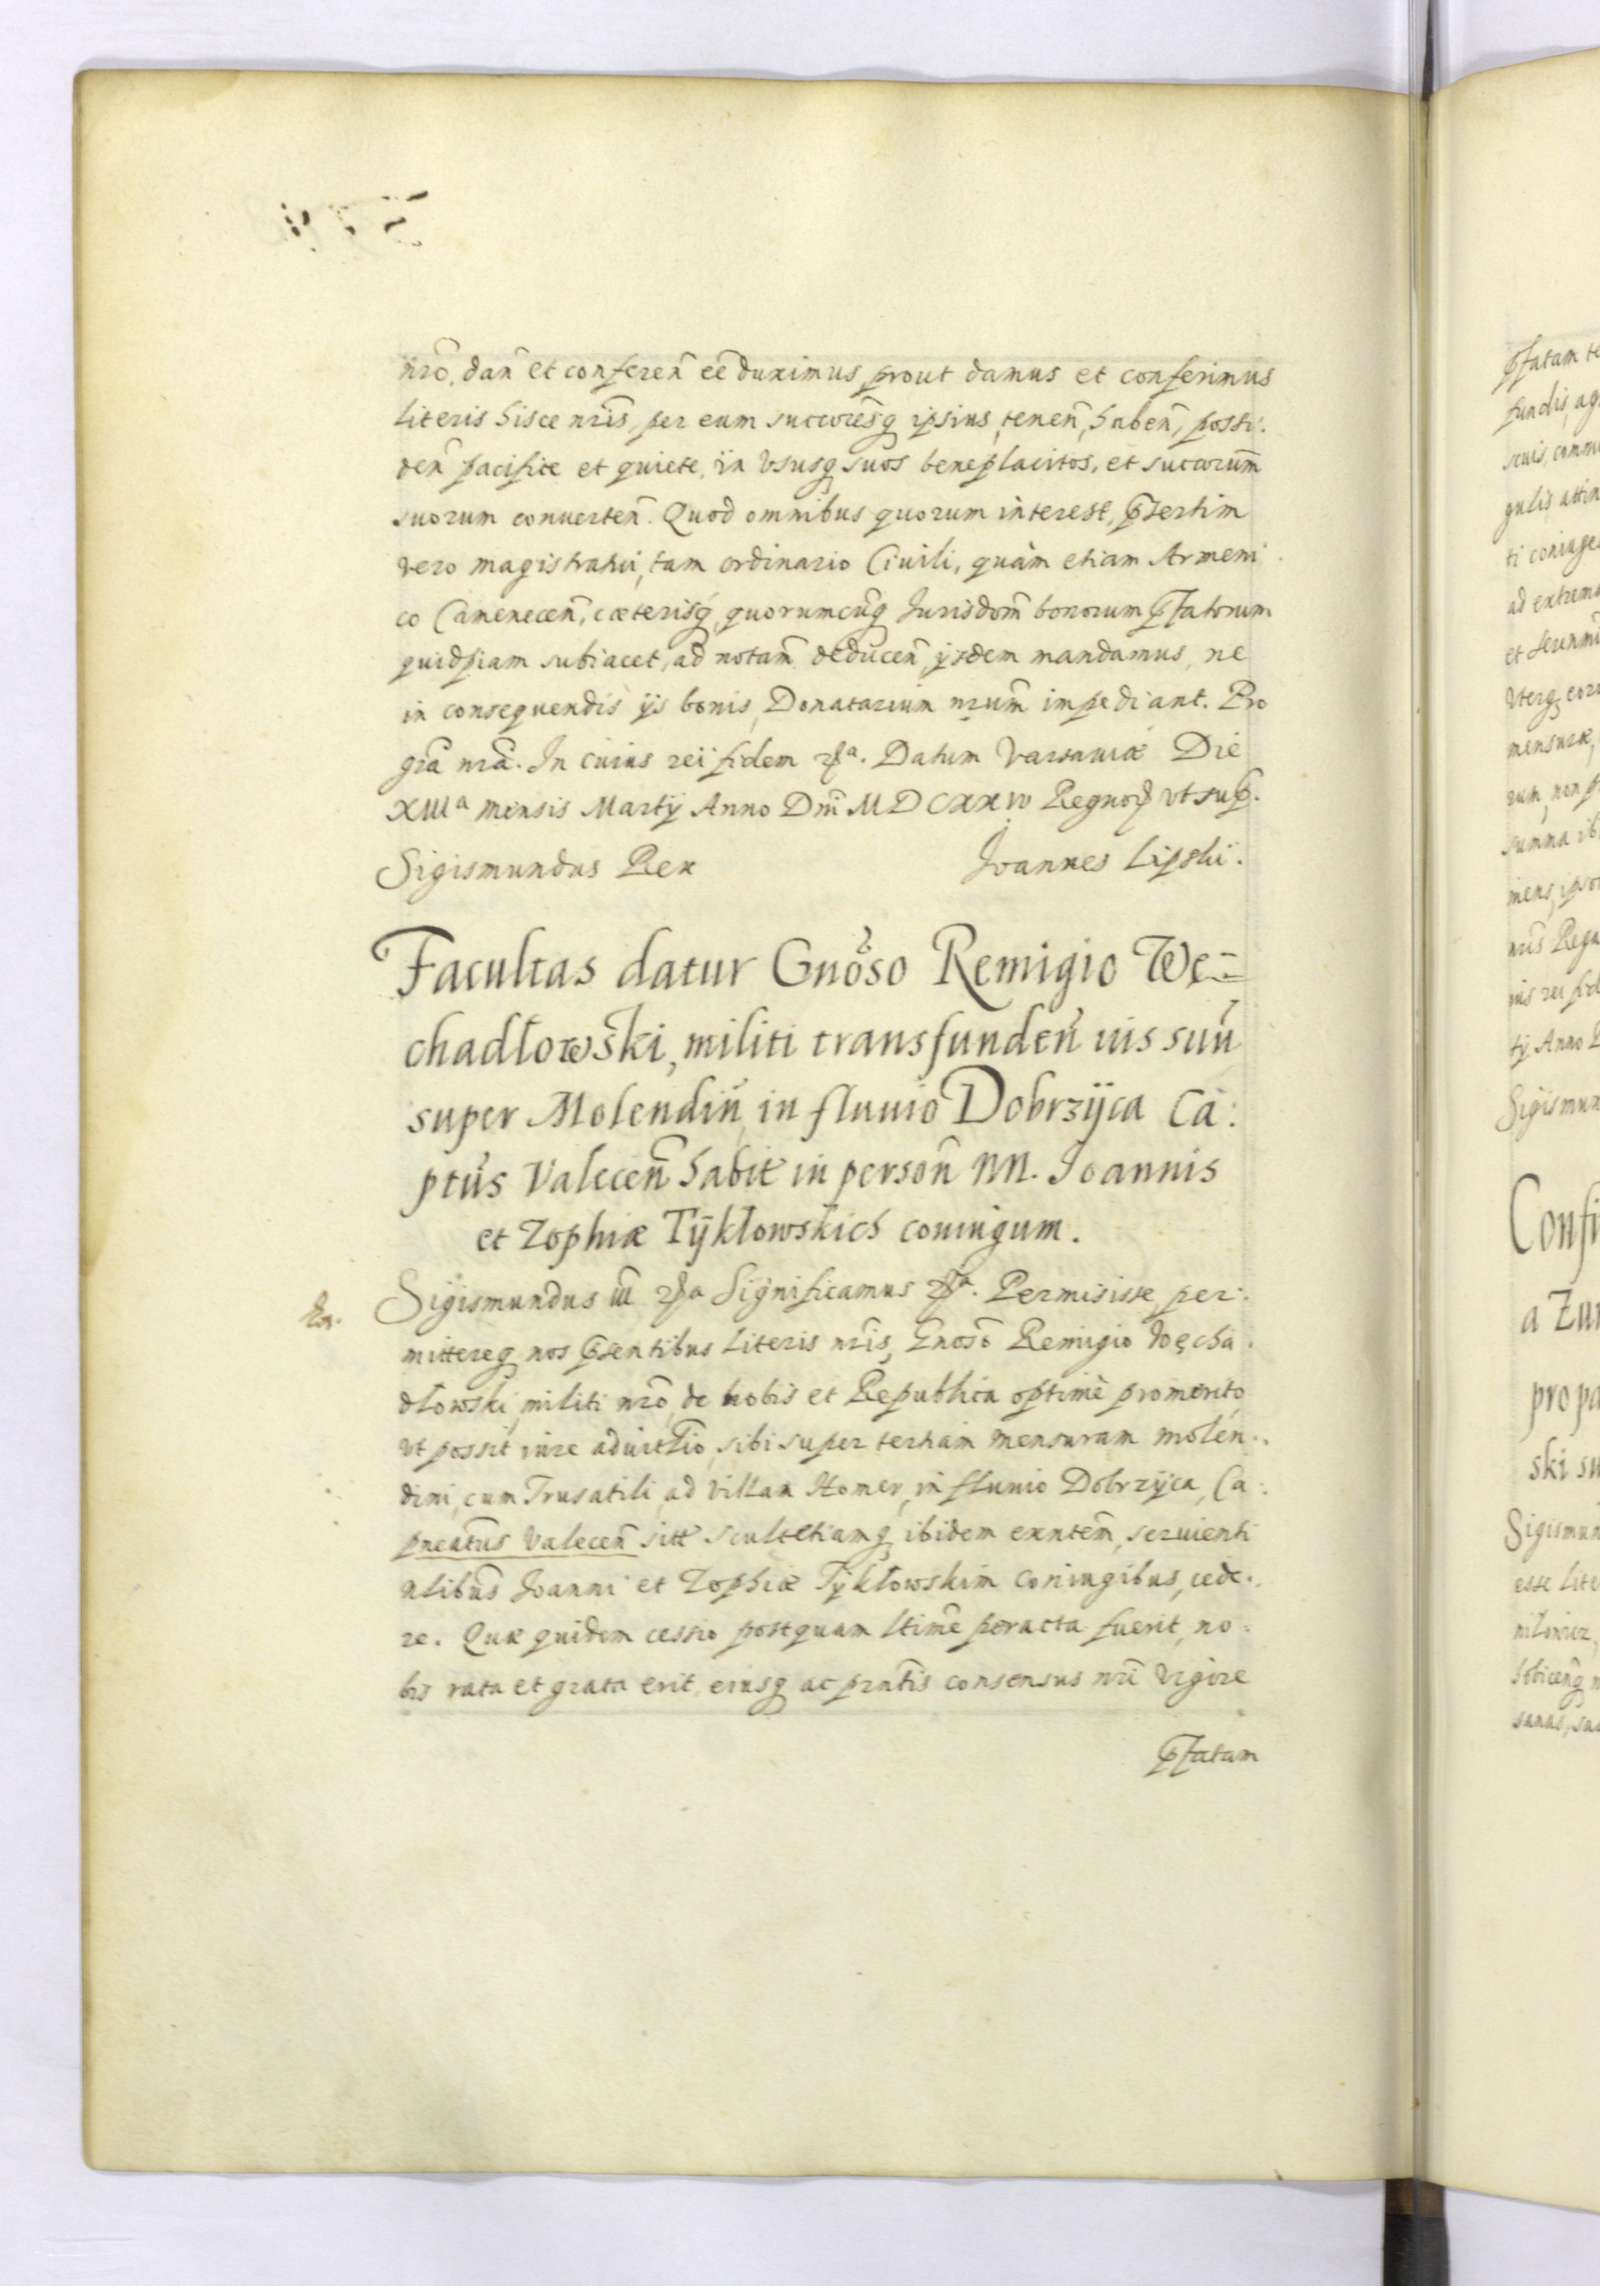 nrõ, dañ et confereñ eẽ duximus, prout damus et conferimus
literis hisce nrĩs, per eum succorẽsq ipsius, teneñ, habeñ, possi-
deñ pacifice et quiete, in Vsusq suos beneplacitos, et succorũm
suorum conuerteñ. Quod omnibus quorum interest, p̃sertim
vero magistratui, tam ordinario Ciuili, quàm etiam Armeni
co Camenecen̄, cæterisq, quorumcũq Jurisdom̃ bonorum p̃fatorum
quidpiam subiacet, ad notam̃ deduceñ, ijsdem mandamus, ne
in consequendis ijs bonis, Donatarium nrũm impediant. Pro
grã nrã. In cuius rei fidem &a. Datum Varsauiæ Die
XIIIa mensis Martij Anno Dm̃ MDCXXIV Regnoꝝ vt sup̃.
Sigismundus Rex Joannes Lipski.
Facultas datur Gnõso Remigio We-
chadłowski, militi transfundeñ ius suũ
super Molendiñ in fluuio Dobrzÿca Ca:
ptũs Valeceñ habit̃ in persoñ NN. Joannis
et Zophiæ Tÿkłowskich coniugum.
Sigismundus III &a Significamus &a. Permisisse, per-
mittereq nos p̃sentibus literis nrĩs, Gnosõ Remigio Węcha
dłowski, militi nrõ, de nobis et Republica optimè promerito,
vt possit iure aduitlĩo, sibi super tertiam mensuram molen-
dini, cum Trusatili, ad villam Homer, in fluuio Dobrzÿca, Ca:
pneatũs Valeceñ sitĩ Scultetiamq ibidem exñtem, seruienti
Nlibũs Joanni et Zophiæ Tÿkłowskim̃ Coniugibus, cede-
re. Quæ quidem cessio postquam ltimẽ peracta fuerit, no-
bis rata et grata erit, eiusq ac prñtis consensus nrĩ vigore
p̃fatam